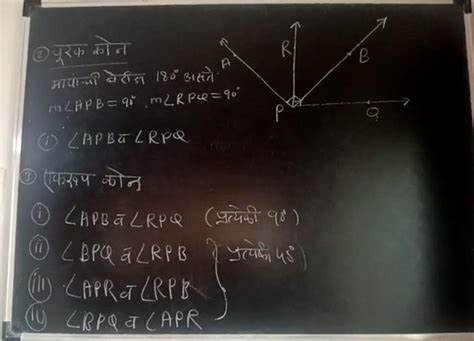 ② पूरक कोन
मापांची बेरीज 180° असते
m∠APB = 90°, m∠RPQ = 90°
① ∠APB व ∠RPQ
③ एकरूप कोन
i ∠APB व ∠RPQ (प्रत्येकी 90°)
ii ∠BPQ व ∠RPB
प्रत्येकी 45°
iii ∠APR व ∠RPB
iv ∠BPQ व ∠APR
A
R
B
P
Q